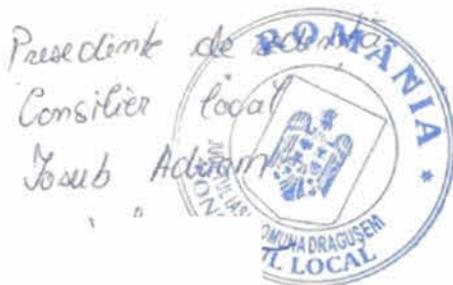 Presedinte de sedință
Consilier local
Iosub Adrian
ROMÂNIA *
COMUNA DRAGUSENI
LOCAL